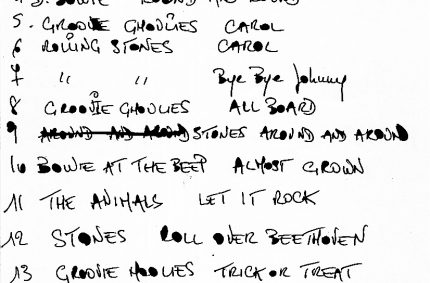 4 D. BOWIE ROUND AND ROUND
5. GROOVIE GHOULIES CAROL
6 ROLLING STONES CAROL
7 " " Bye Bye Johnny
8 GROOVIE GHOULIES ALL BOARD
9 STONES AROUND AND AROUND
10 BOWIE AT THE BEEP ALMOST GROWN
11 THE ANIMALS LET IT ROCK
12 STONES ROLL OVER BEETHOVEN
13 GROOVIE HOOLIES TRICK OR TREAT